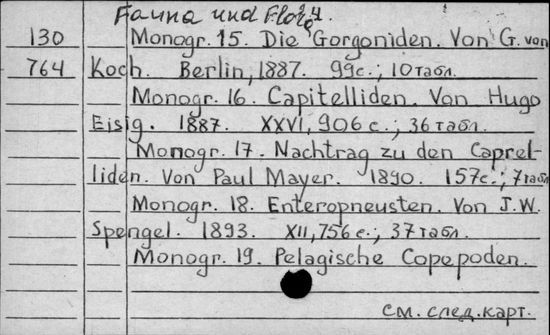 Fauna und Flora. 4
130 Monogr. 15. Die Gorgoniden. Von G. von
764 Koch. Berlin, 1887. 99с.; 10 табл.
Monogr. 16. Capitelliden. Von Hugo
Eisig. 1887. XXVI, 906 с.; 36 табл.
Monogr. 17. Nachtrag zu den Caprel-
liden. Von Paul Mayer. 1890. 157с.; 7 табл.
Monogr. 18. Enteropneusten. Von J.W.
Spengel. 1893. XII, 756 с.; 37 табл.
Monogr. 19. Pelagische Copepoden.
см. след. карт.